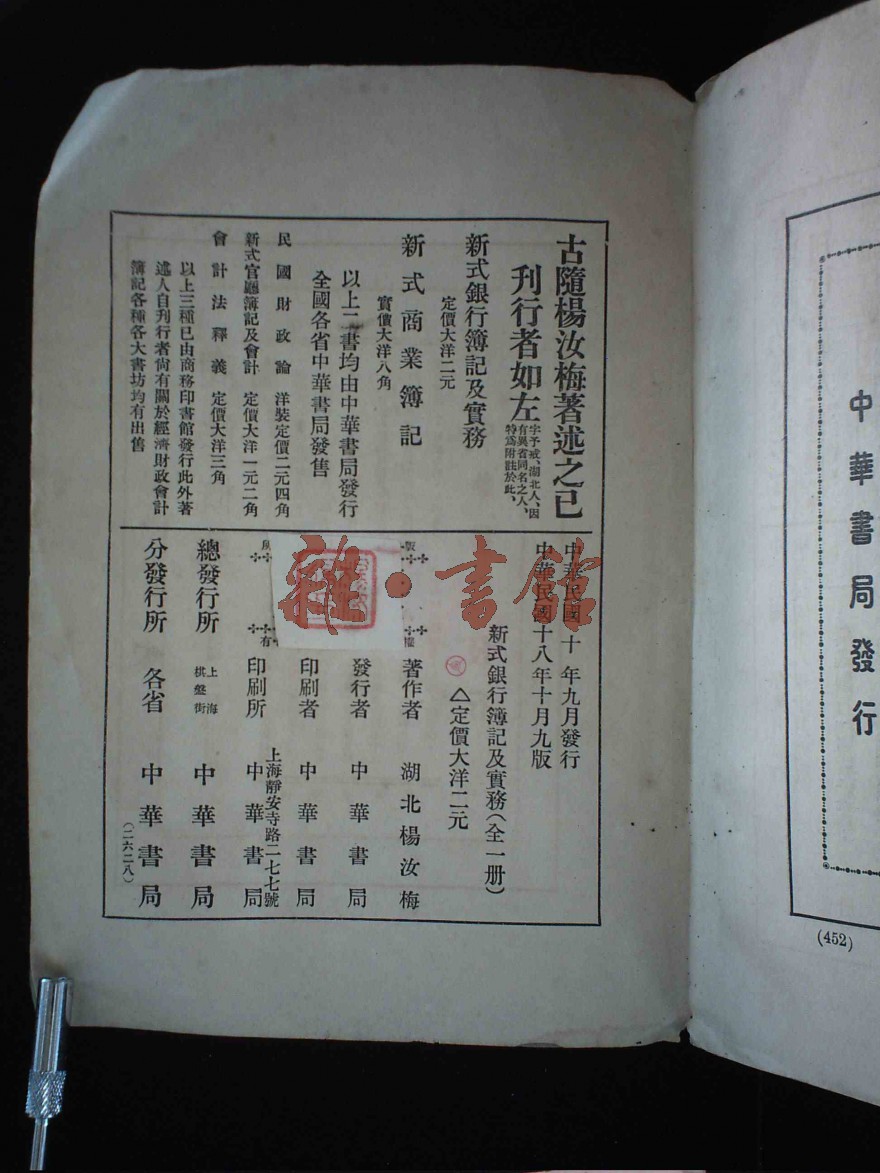 古隨楊汝梅著述之已
刊行者如左
字予戒、湖北人、因
有異省同名之人、
特爲附註於此、
新式銀行簿記及實務
定價大洋二元
新式商業簿記
實價大洋八角
以上二書均由中華書局發行
全國各省中華書局發售
民國財政論 洋裝定價二元四角
新式官廳簿記及會計 定價大洋一元二角
會計法釋義 定價大洋三角
以上三種已由商務印書館發行此外著
述人自刋行者尙有關於經濟財政會計
簿記各種各大書坊均有出售
中華民國十年九月發行
中華民國十八年十月九版
新式銀行簿記及實務(全一册)
△定價大洋二元
版
權
有
著作者 湖北楊汝梅
發行者 中華書局
印刷者 中華書局
上海靜安寺路二七七號
印刷所 中華書局
總發行所 上海棋盤街 中華書局
分發行所 各省 中華書局
(二六二八)
雜·書館
中華書局發行
(452)